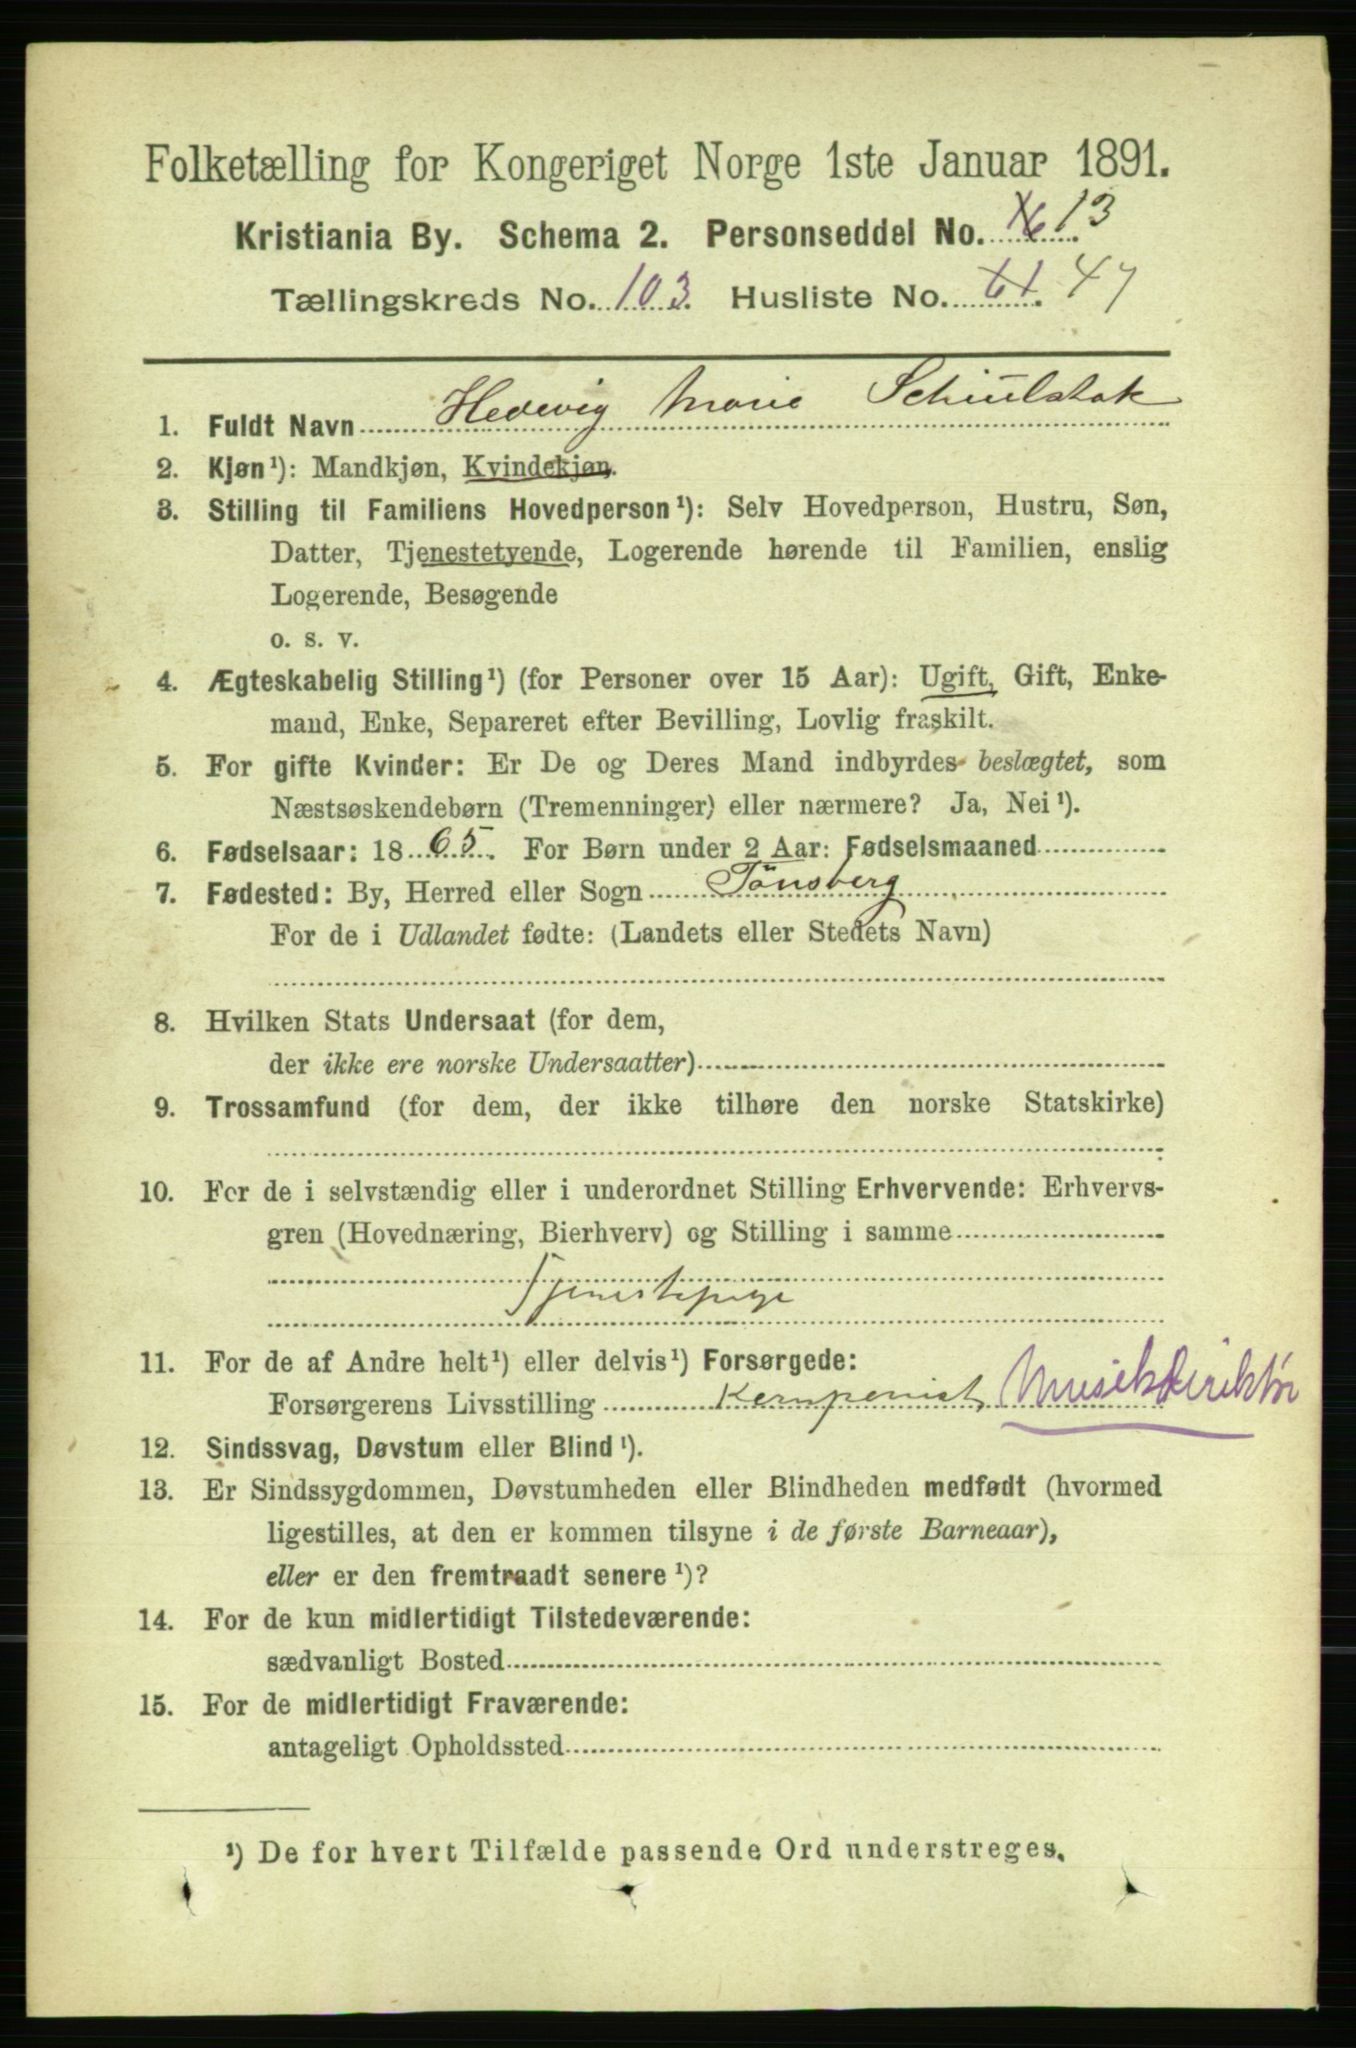 Folketælling for Kongeriget Norge 1ste Januar 1891.
Kristiania By. Schema 2. Personseddel No. 13
Tællingskreds No. 103. Husliste No. 47
1. Fuldt Navn Hedevig Marie
2. Kjøn¹): Mandkjøn, Kvindekjøn.
3. Stilling til Familiens Hovedperson¹): Selv Hovedperson, Hustru, Søn,
Datter, Tjenestetyende, Logerende hørende til Familien, enslig
Logerende, Besøgende
o. s. v.
4. Ægteskabelig Stilling¹) (for Personer over 15 Aar): Ugift, Gift, Enke-
mand, Enke, Separeret efter Bevilling, Lovlig fraskilt.
5. For gifte Kvinder: Er De og Deres Mand indbyrdes beslægtet, som
Næstsøskendebørn (Tremenninger) eller nærmere? Ja, Nei¹).
6. Fødselsaar: 1865. For Børn under 2 Aar: Fødselsmaaned
7. Fødested: By, Herred eller Sogn Tönsberg
For de i Udlandet fødte: (Landets eller Stedets Navn)
8. Hvilken Stats Undersaat (for dem,
der ikke ere norske Undersaatter)
9. Trossamfund (for dem, der ikke tilhøre den norske Statskirke)
10. For de i selvstændig eller i underordnet Stilling Erhvervende: Erhvervs-
gren (Hovednæring, Bierhverv) og Stilling i samme
Tjenestepige
11. For de af Andre helt¹) eller delvis¹) Forsørgede:
Forsørgerens Livsstilling Komponist, Musikdirektør
12. Sindssvag, Døvstum eller Blind¹).
13. Er Sindssygdommen, Døvstumheden eller Blindheden medfødt (hvormed
ligestilles, at den er kommen tilsyne i de første Barneaar),
eller er den fremtraadt senere¹)?
14. For de kun midlertidigt Tilstedeværende:
sædvanligt Bosted
15. For de midlertidigt Fraværende:
antageligt Opholdssted
¹) De for hvert Tilfælde passende Ord understreges.